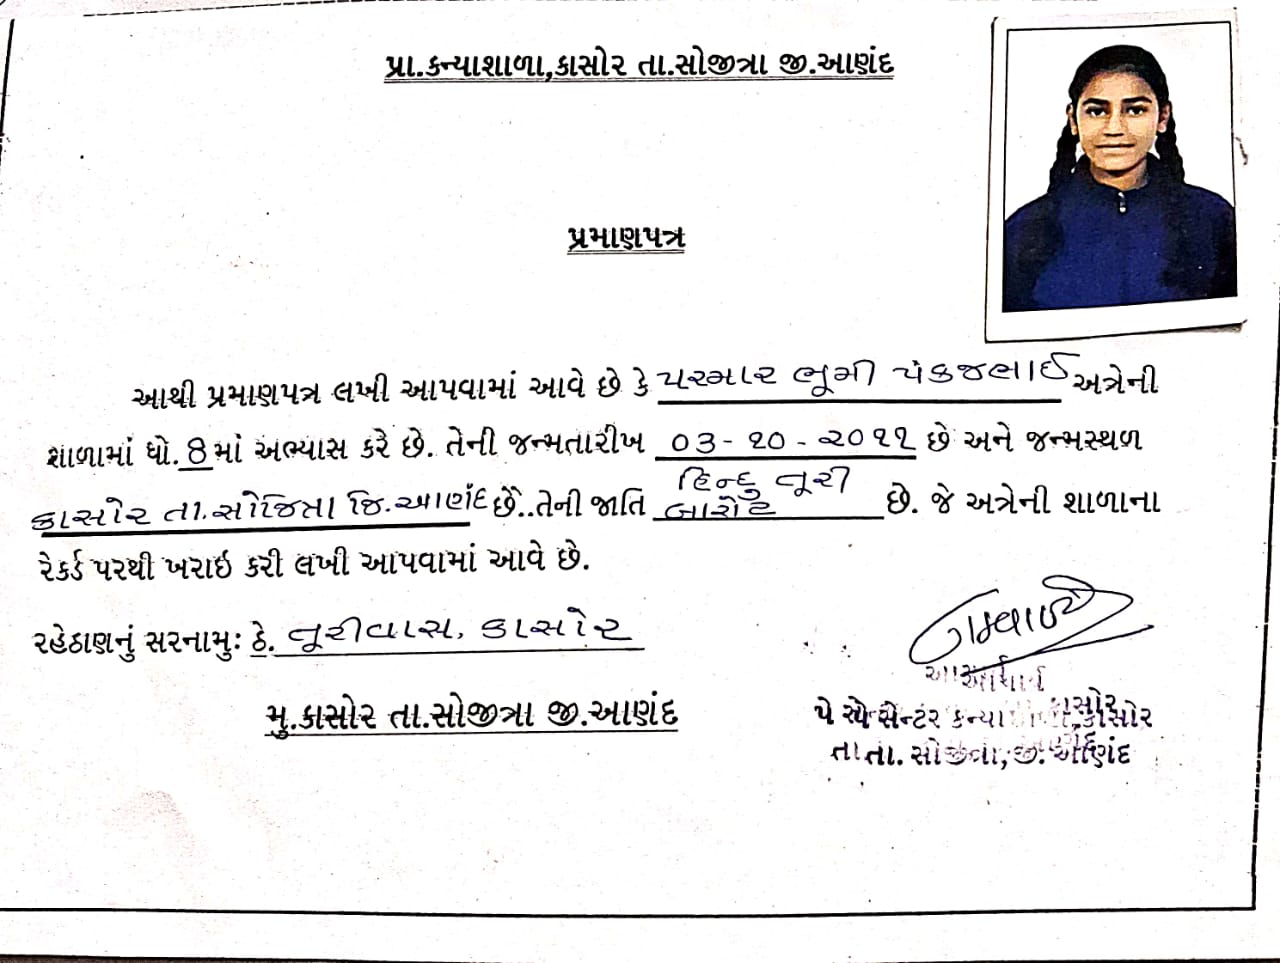 પ્રા.કન્યાશાળા,કાસોર તા.સોજીત્રા જી.આણંદ
પ્રમાણપત્ર
આથી પ્રમાણપત્ર લખી આપવામાં આવે છે કે પરમાર ભૂમી પંકજભાઈ અત્રેની
શાળામાં ધો.8માં અભ્યાસ કરે છે. તેની જન્મતારીખ 03-10-2011 છે અને જન્મસ્થળ
કાસોર તા.સોજિત્રા જિ.આણંદ છે..તેની જાતિ હિન્દુ તૂરી બારોટ છે. જે અત્રેની શાળાના
રેકર્ડ પરથી ખરાઇ કરી લખી આપવામાં આવે છે.
રહેઠાણનું સરનામુ: ઠે. તૂરીવાસ, કાસોર
મુ.કાસોર તા.સોજીત્રા જી.આણંદ
આચાર્ય
પે સેન્ટર કન્યા કાસોર
તા. સોજીત્રા, જી. આણંદ